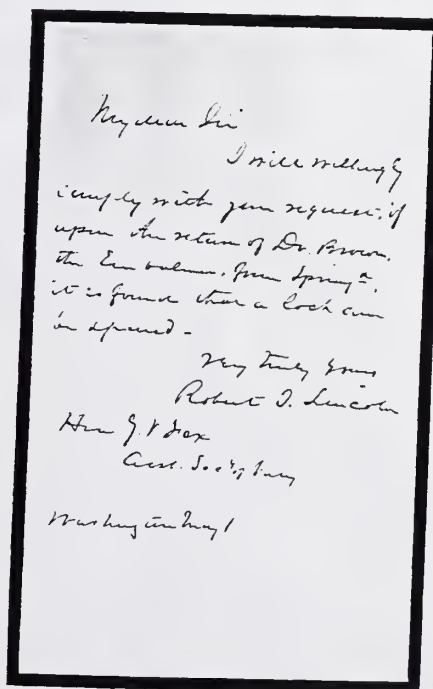 My dear Sir
I will willingly
comply with your request, if
upon the return of Dr. Brown,
the Embalmer, from Springd,
it is found that a lock can
be spared -
Very truly yours
Robert T. Lincoln
Hon G. V Fox
Asst. Secy of Navy
Washington May 1